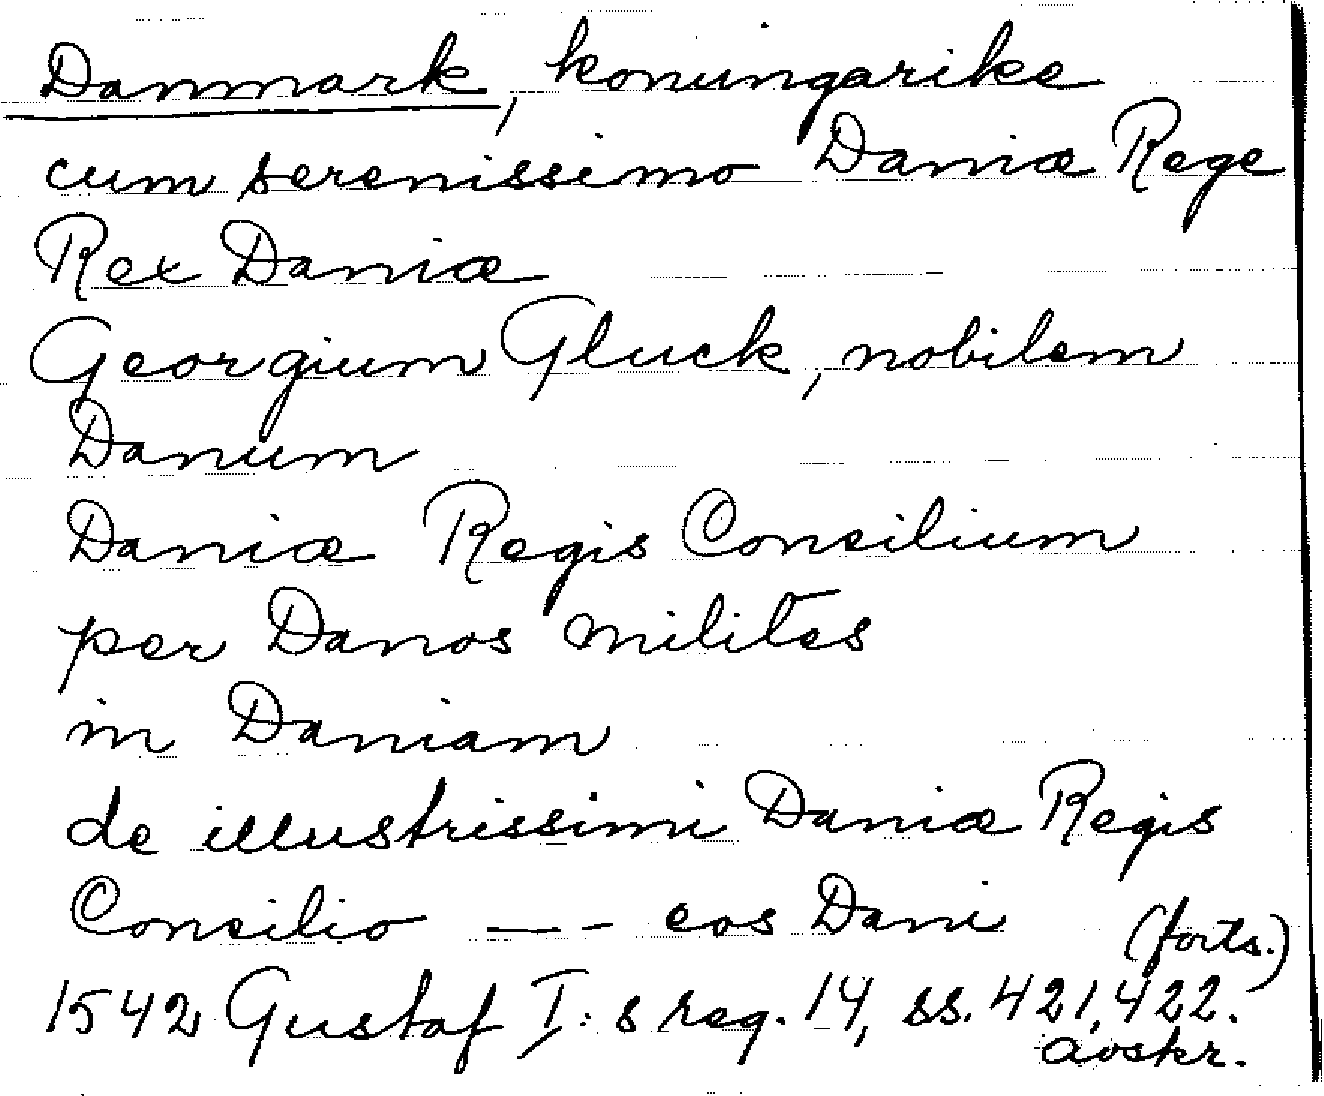 Danmark, konungarike
cum serenissimo Daniæ Rege
Rex Daniæ
Georgium Gluck, nobilem
Danum
Daniæ Regis Consilium
per Danos milites
in Daniam
de illustrissimi Daniæ Regis
Consilio — – eos Dani (forts.)
1542 Gustaf I:s reg. 14, ss. 421, 422.
avskr.